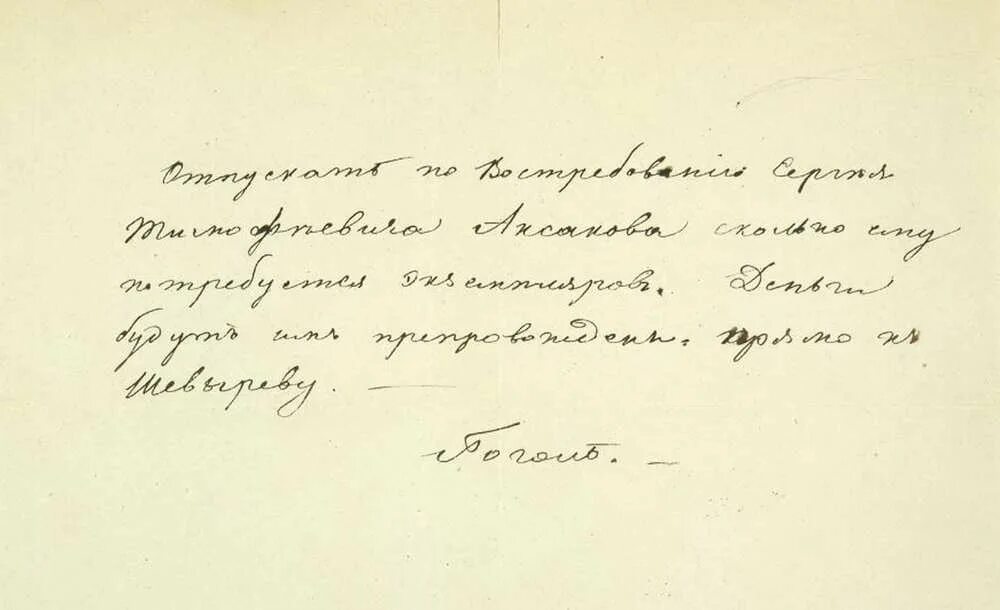 Отпускать по востребованію Сергѣя
Тимофѣевича Аксакова сколько ему
потребуется экземпляровъ. Деньги
будутъ имъ препровождены прямо къ
Шевыреву. —
Гоголь. —